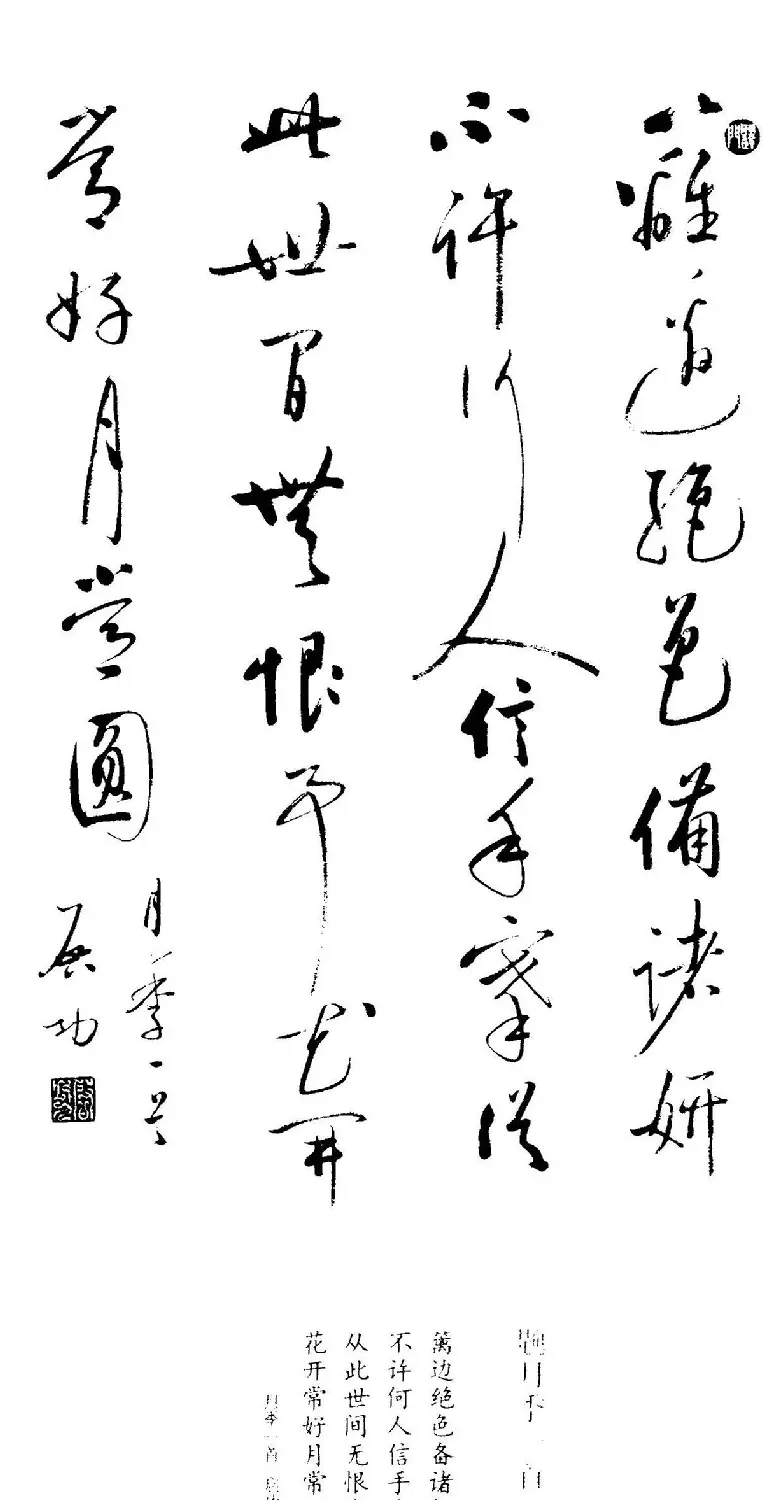 籬邊絕色備諸妍
不許何人信手搴從
此世間無恨事花開
常好月常圓
月季一首
啟功
篱边绝色备诸
不许何人信手
从此世间无恨
花开常好月常
月季一首